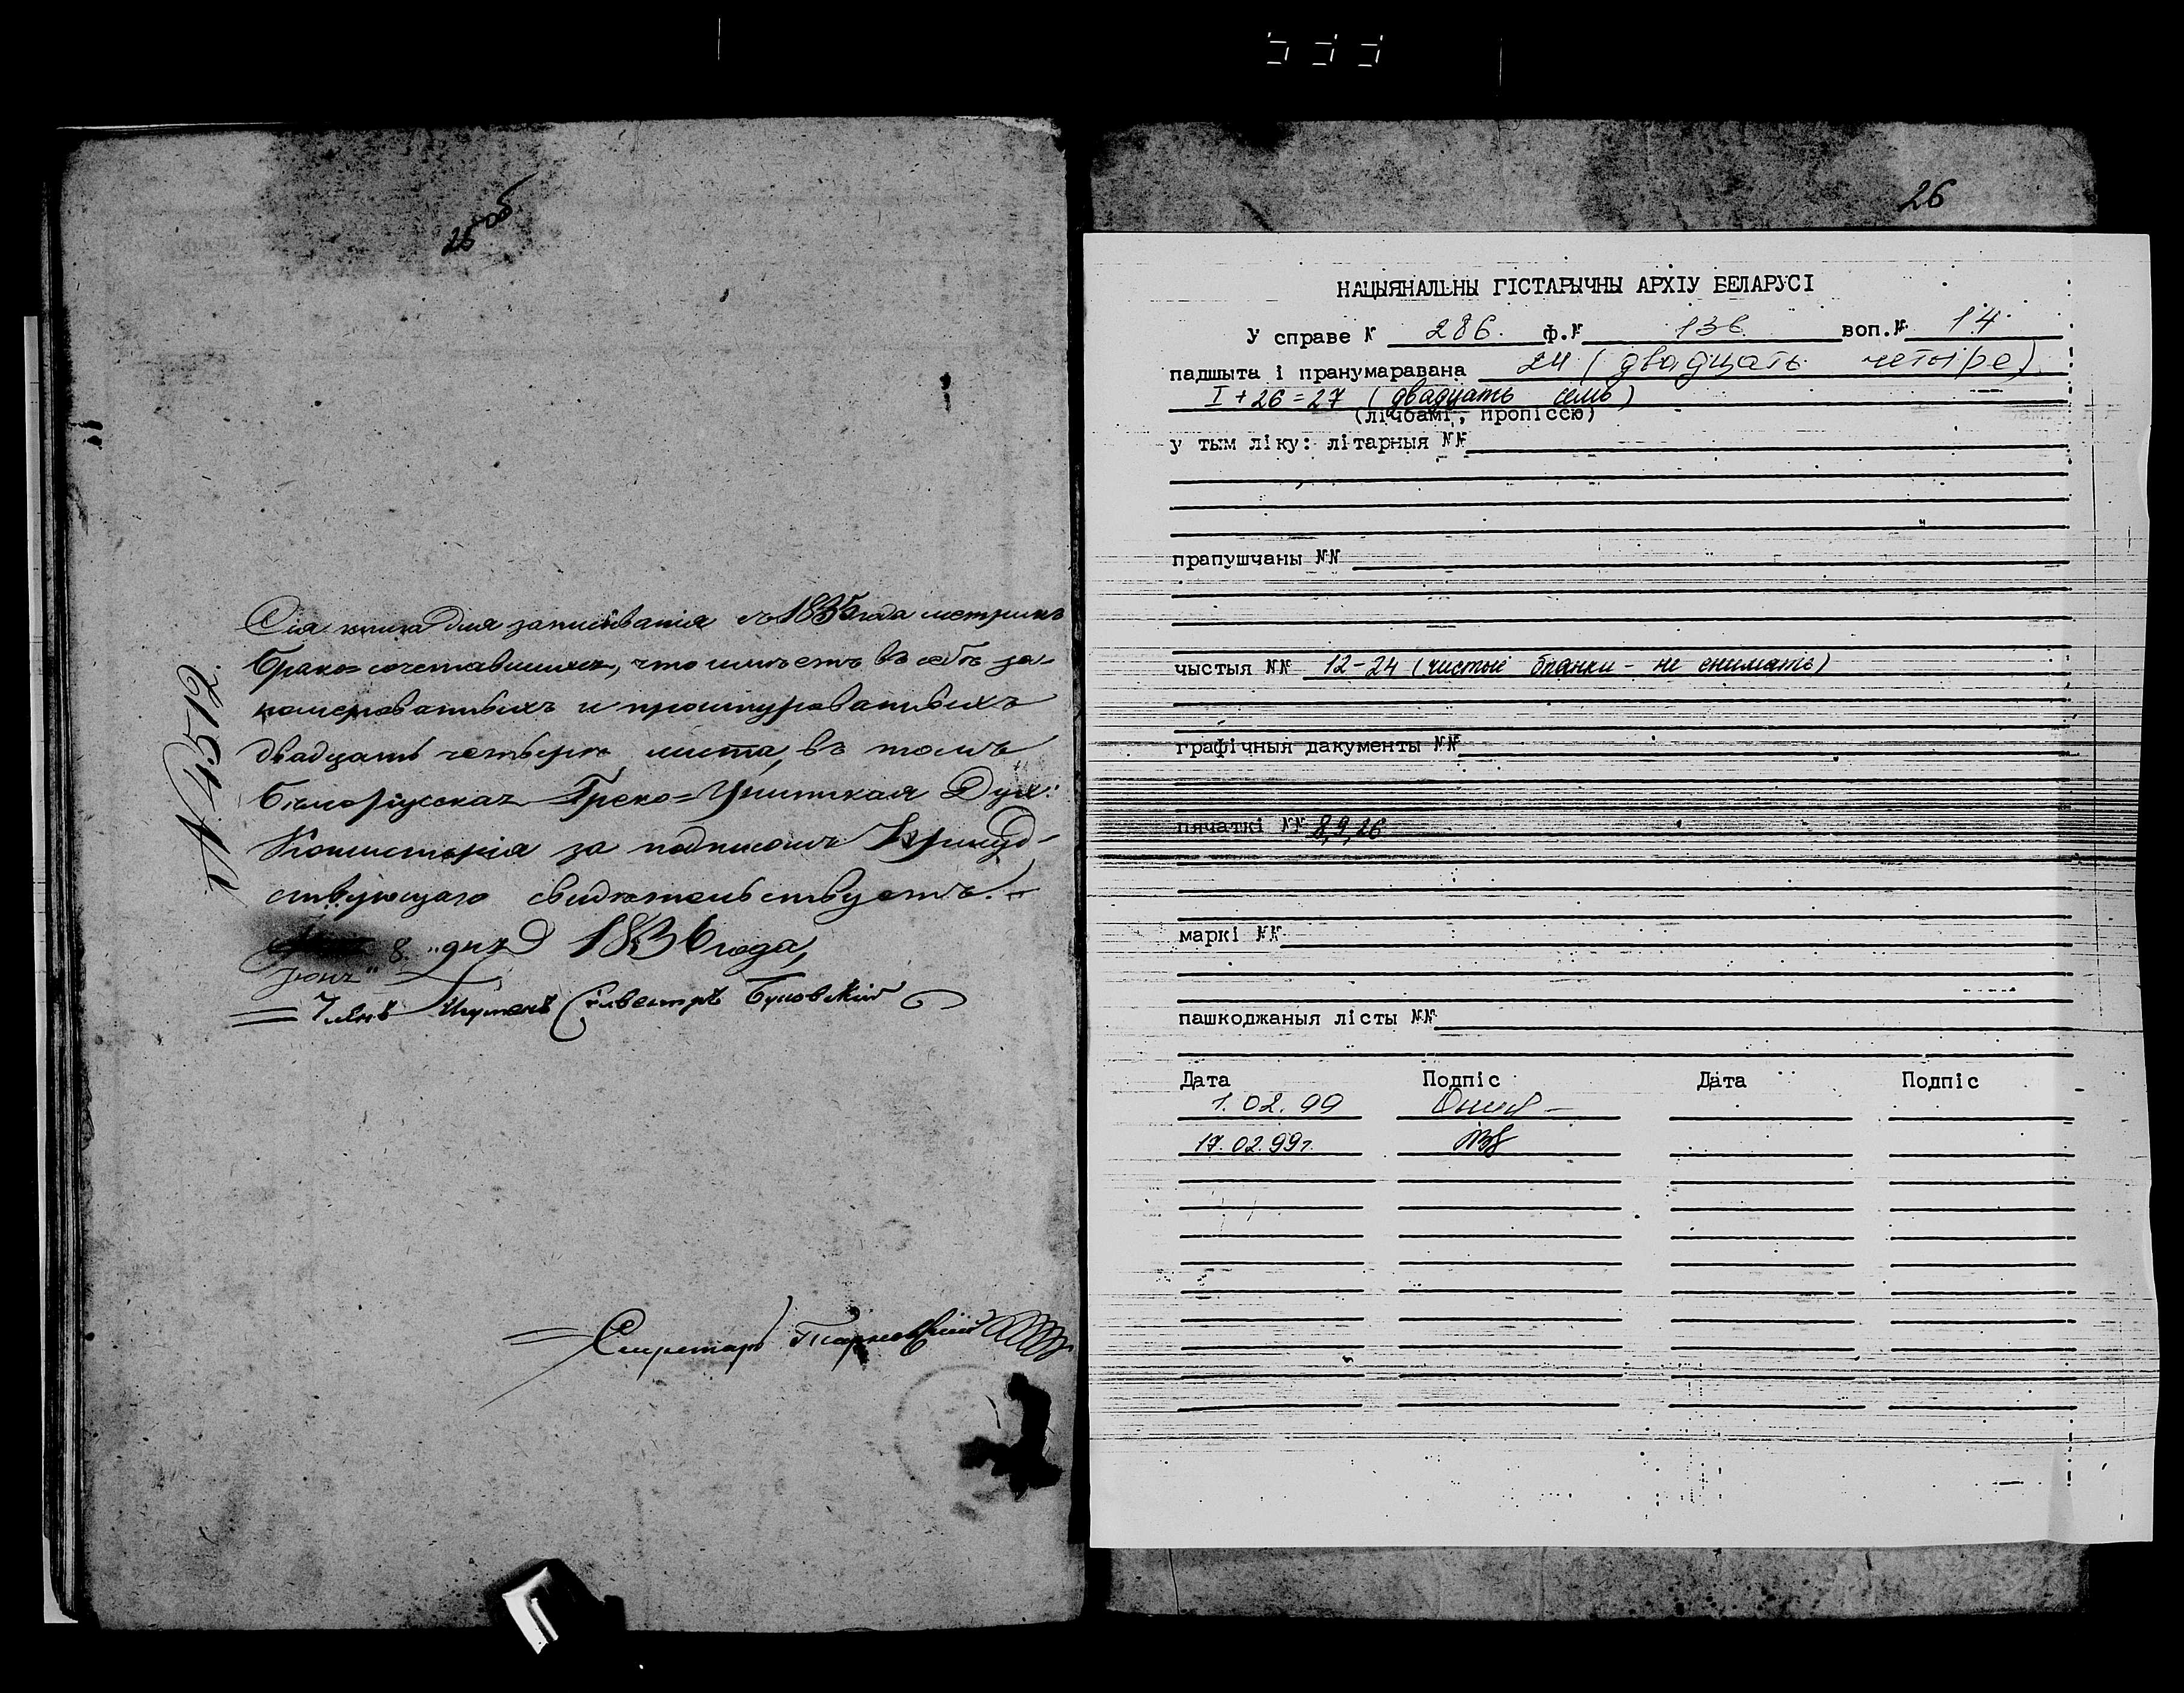 25 об
№ 4572.
Сія книга для записыванія съ 1835 года метрикъ
брако=сочетавшихся, что имѣетъ въ себѣ за-
номерованныхъ и прошнурованныхъ
двадцать четыре листа, въ томъ
Бѣлорусская Греко=Унитская Дух:
Консисторія за подписомъ Присуд-
ствующаго свидѣтельствуетъ.
8 "дня 1836 года,
Іюня"
Членъ Игуменъ Сильвестръ
Секретарь
26
НАЦЫЯНАЛЬНЫ ГІСТАРЫЧНЫ АРХІУ БЕЛАРУСІ
У справе № 286. ф.№ 136 воп.№ 14
падшыта і пранумаравана 24 (двадцать четыре)
I + 26 = 27 (двадцать семь)
(лічбамі, пропіссю)
у тым ліку: літарныя №№
прапушчаны №№
чыстыя №№ 12-24 (чистые бланки - не снимать)
графічныя дакументы №№
пячаткі №№ 8,9,26
маркі №№
пашкоджаныя лісты №№
Дата Подпіс Дата Подпіс
1.02.99
17.02.99г.